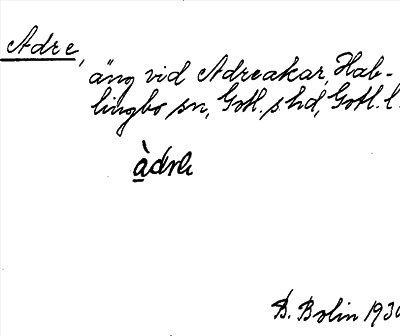 Adre,
äng vid Adreakar, Hab-
lingbo sn, Gotl. s hd, Gotl. l.
àdrɩ
B. Bolin 1930